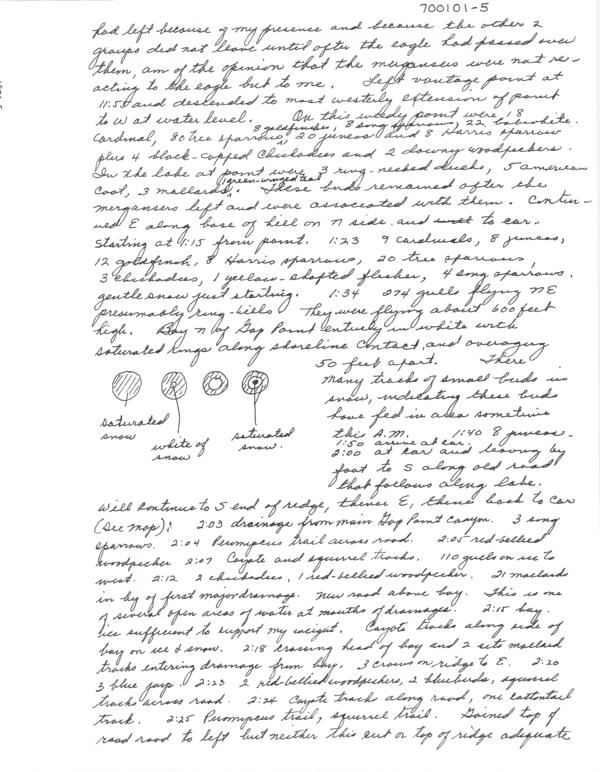 700101-5
had left because of my presence and because the other 2
groups did not leave until after the eagle had passed over
them, am of the opinion that the mergansers were not re-
acting to the eagle but to me. Left vantage point at
11:55 and descended to most westerly extension of point
to W at water level. On this weedy point were 8
8 goldfinches, 8 song sparrows, 22 bobwhite.
Cardinal, 80 tree sparrows, 20 juncos and 8 Harris sparrow
plus 4 black-capped chickadees and 2 downy woodpeckers.
In the lake at point were 3 ring-necked ducks, 5 american
1 green-winged teal
Coot, 3 mallards. These birds remained after the
mergansers left and were associated with them. Contin-
ued E along base of hill on N side and to car.
Starting at 1:15 from point. 1:23 9 cardinals, 8 juncos,
12 goldfinch, 8 Harris sparrows, 20 tree sparrows,
3 chickadees, 1 yellow-shafted flicker, 4 song sparrows.
gentle snow just starting. 1:34 274 gulls flying NE
presumably ring-bills They were flying about 600 feet
high. Bay N of Gap Point entirely in white with
saturated rings along shoreline contact, and averaging
50 feet apart. There
many tracks of small birds in
snow, indicating these birds
have fed in area sometime
this A.M. 1:40 8 juncos.
1:50 arrive at car.
2:00 at car and leaving by
foot to S along old road
that follows along lake.
saturated
snow
white of
snow
saturated
snow.
Will continue to S end of ridge, thence E, thence back to car
(See map): 2:03 drainage from main Gap Point Canyon. 3 song
sparrows. 2:04 Peromyscus trail across road. 2:05 red-bellied
woodpecker 2:07 Coyote and squirrel tracks. 110 gulls on ice to
west. 2:12 2 chickadees, 1 red-bellied woodpecker. 21 mallards
in by of first major drainage. New road above bay. This is one
of several open areas of water at mouths of drainages. 2:15 bay.
ice sufficient to support my weight. Coyote tracks along side of
bay on ice & snow. 2:18 crossing head of bay and 2 sets mallard
tracks entering drainage from bay. 3 crows on ridge to E. 2:20
3 blue jays. 2:23 2 red-bellied woodpeckers, 2 bluebirds, squirrel
tracks across road. 2:24 Coyote track along road, one cottontail
track. 2:25 Peromyscus trail, squirrel trail. Gained top of
road road to left but neither this cut or top of ridge adequate